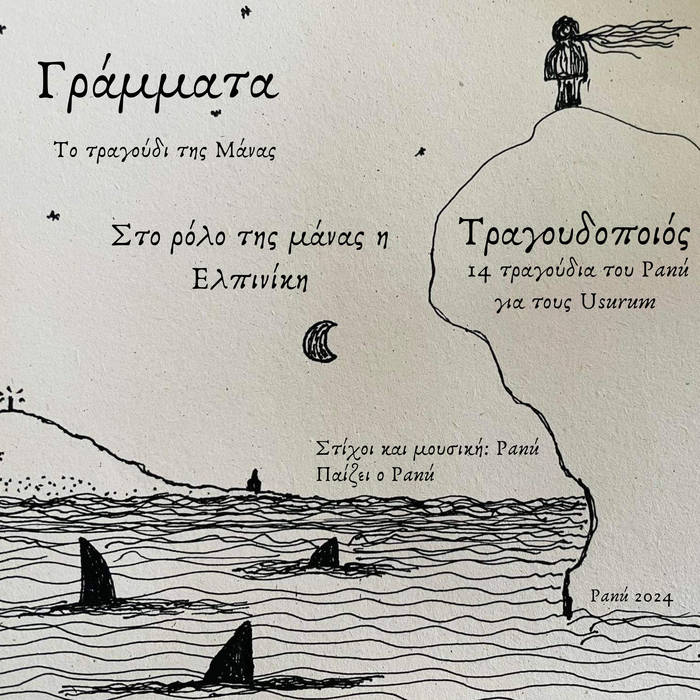 Γράμματα
Το τραγούδι της Μάνας
Στο ρόλο της μάνας η
Ελπινίκη
Τραγουδοποιός
14 τραγούδια του Ρanú
για τους Usurum
Στίχοι και μουσική: Ρanú
Παίζει ο Ρanú
Ρanú 2024